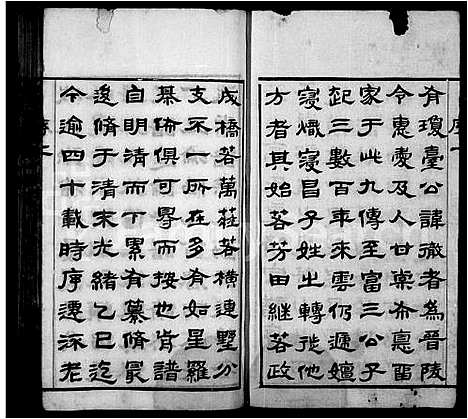 有瓊臺公諱徹者為晋陵
令惠愛及人甘棠布蔭留
家于此九傳至富三公子
起三數百年來雲仍遞嬗
寖熾寖昌子姓之轉徙他
方者其始若芳田繼若政
成橋若萬莊若橫連墅分
支不一所在多有如星羅
棊佈俱可畧而按也肯譜
自明清而下累有纂脩最
後脩于清末光緒乙巳迄
今逾四十載時序遷流老